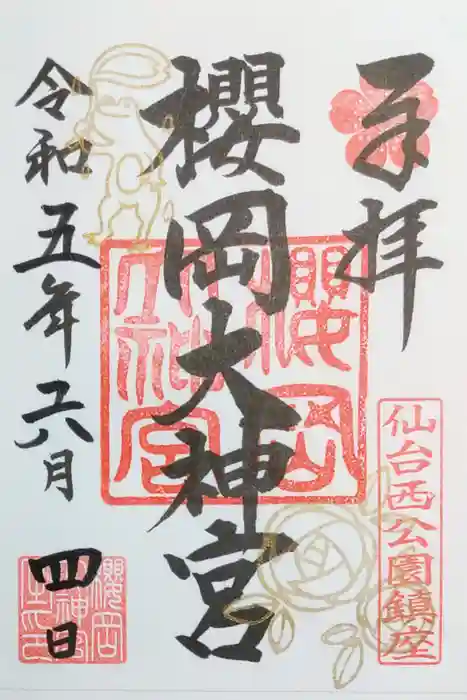 奉拝
櫻岡大神宮
令和五年六月
四日
仙台西公園鎮座
櫻岡大神宮